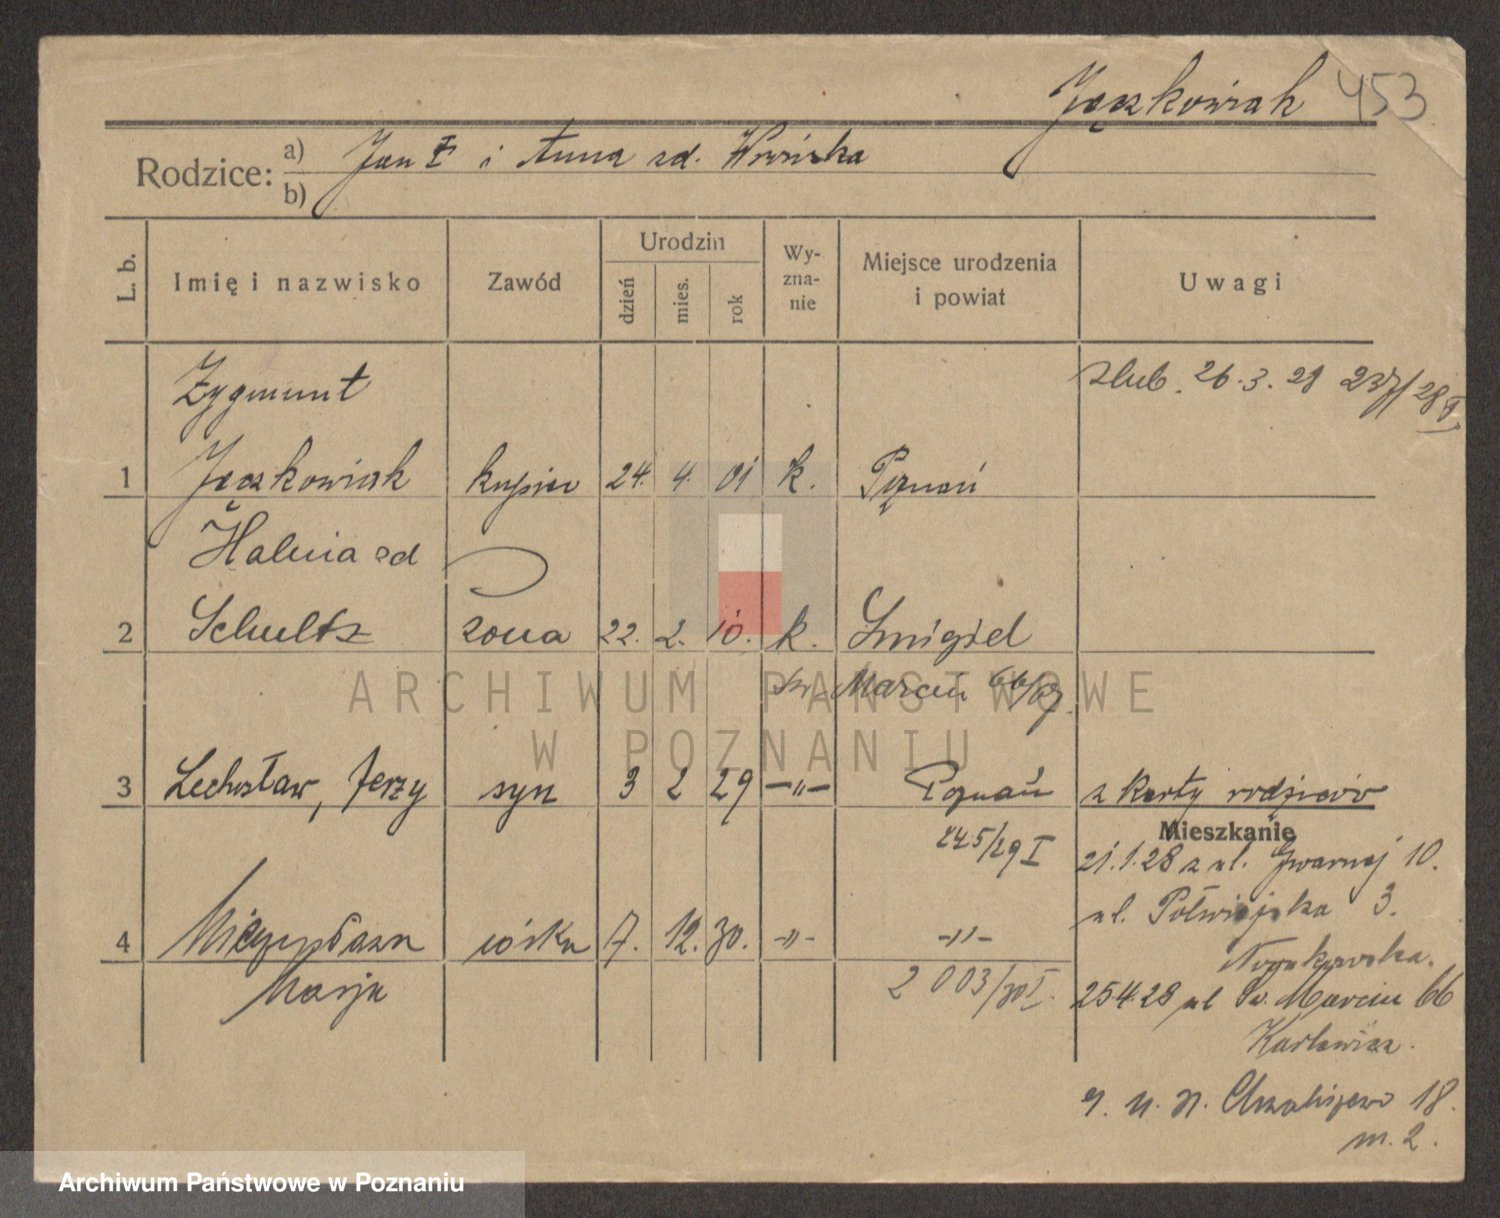 Jączkowiak 453
Rodzice: a) Jan † i Anna zd.
b)
L. b. Imię i nazwisko Zawód Urodzin dzień mies. rok Wy-zna-nie Miejsce urodzenia i powiat Uwagi
Zygmunt ślub. 26.3.28 237/28 I
1 Jączkowiak kupiec 24. 4. 01 k. Poznań
Halina zd
2 Schultz żona 22. 2. 10. k. Śmigiel
Św. Marcin 66/67.
ARCHIWUM PAŃSTWOWE
W POZNANIU
3 Lechosław, Jerzy syn 3 2 29 —"— Poznań z karty rodziców
245/29 I
Mieszkanie
21.1.28 z ul. Gwarnej 10.
ul. Półwiejska 3.
4 Mieczysława córka 7. 12. 30. -"- -"-
Nowakowska.
Marja 2003/30 I.
25.4.28 ul Św. Marcin 66
Karłowicz.
18.
m. 2.
Archiwum Państwowe w Poznaniu